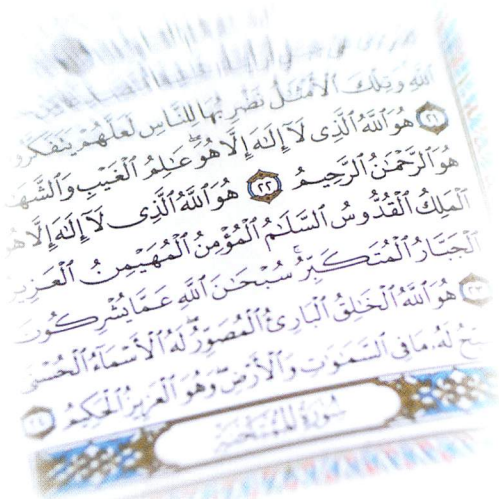 اللَّهِ وَتِلْكَ الْأَمْثَالُ نَضْرِبُهَا لِلنَّاسِ لَعَلَّهُمْ يَتَفَكَّرُو
٢١ هُوَ اللَّهُ الَّذِى لَآ إِلَٰهَ إِلَّا هُوَ ۖ عَٰلِمُ الْغَيْبِ وَالشَّهَٰ
هُوَ الرَّحْمَٰنُ الرَّحِيمُ ٢٢ هُوَ اللَّهُ الَّذِى لَآ إِلَٰهَ إِلَّا هُ
الْمَلِكُ الْقُدُّوسُ السَّلَٰمُ الْمُؤْمِنُ الْمُهَيْمِنُ الْعَزِيزُ
الْجَبَّارُ الْمُتَكَبِّرُ ۚ سُبْحَٰنَ اللَّهِ عَمَّا يُشْرِكُونَ
٢٣ هُوَ اللَّهُ الْخَٰلِقُ الْبَارِئُ الْمُصَوِّرُ ۖ لَهُ الْأَسْمَآءُ الْحُسْنَىٰ
يُسَبِّحُ لَهُۥ مَا فِى السَّمَٰوَٰتِ وَالْأَرْضِ ۖ وَهُوَ الْعَزِيزُ الْحَكِيمُ ٢٤
سُورَةُ الْمُمْتَحَنَةِ